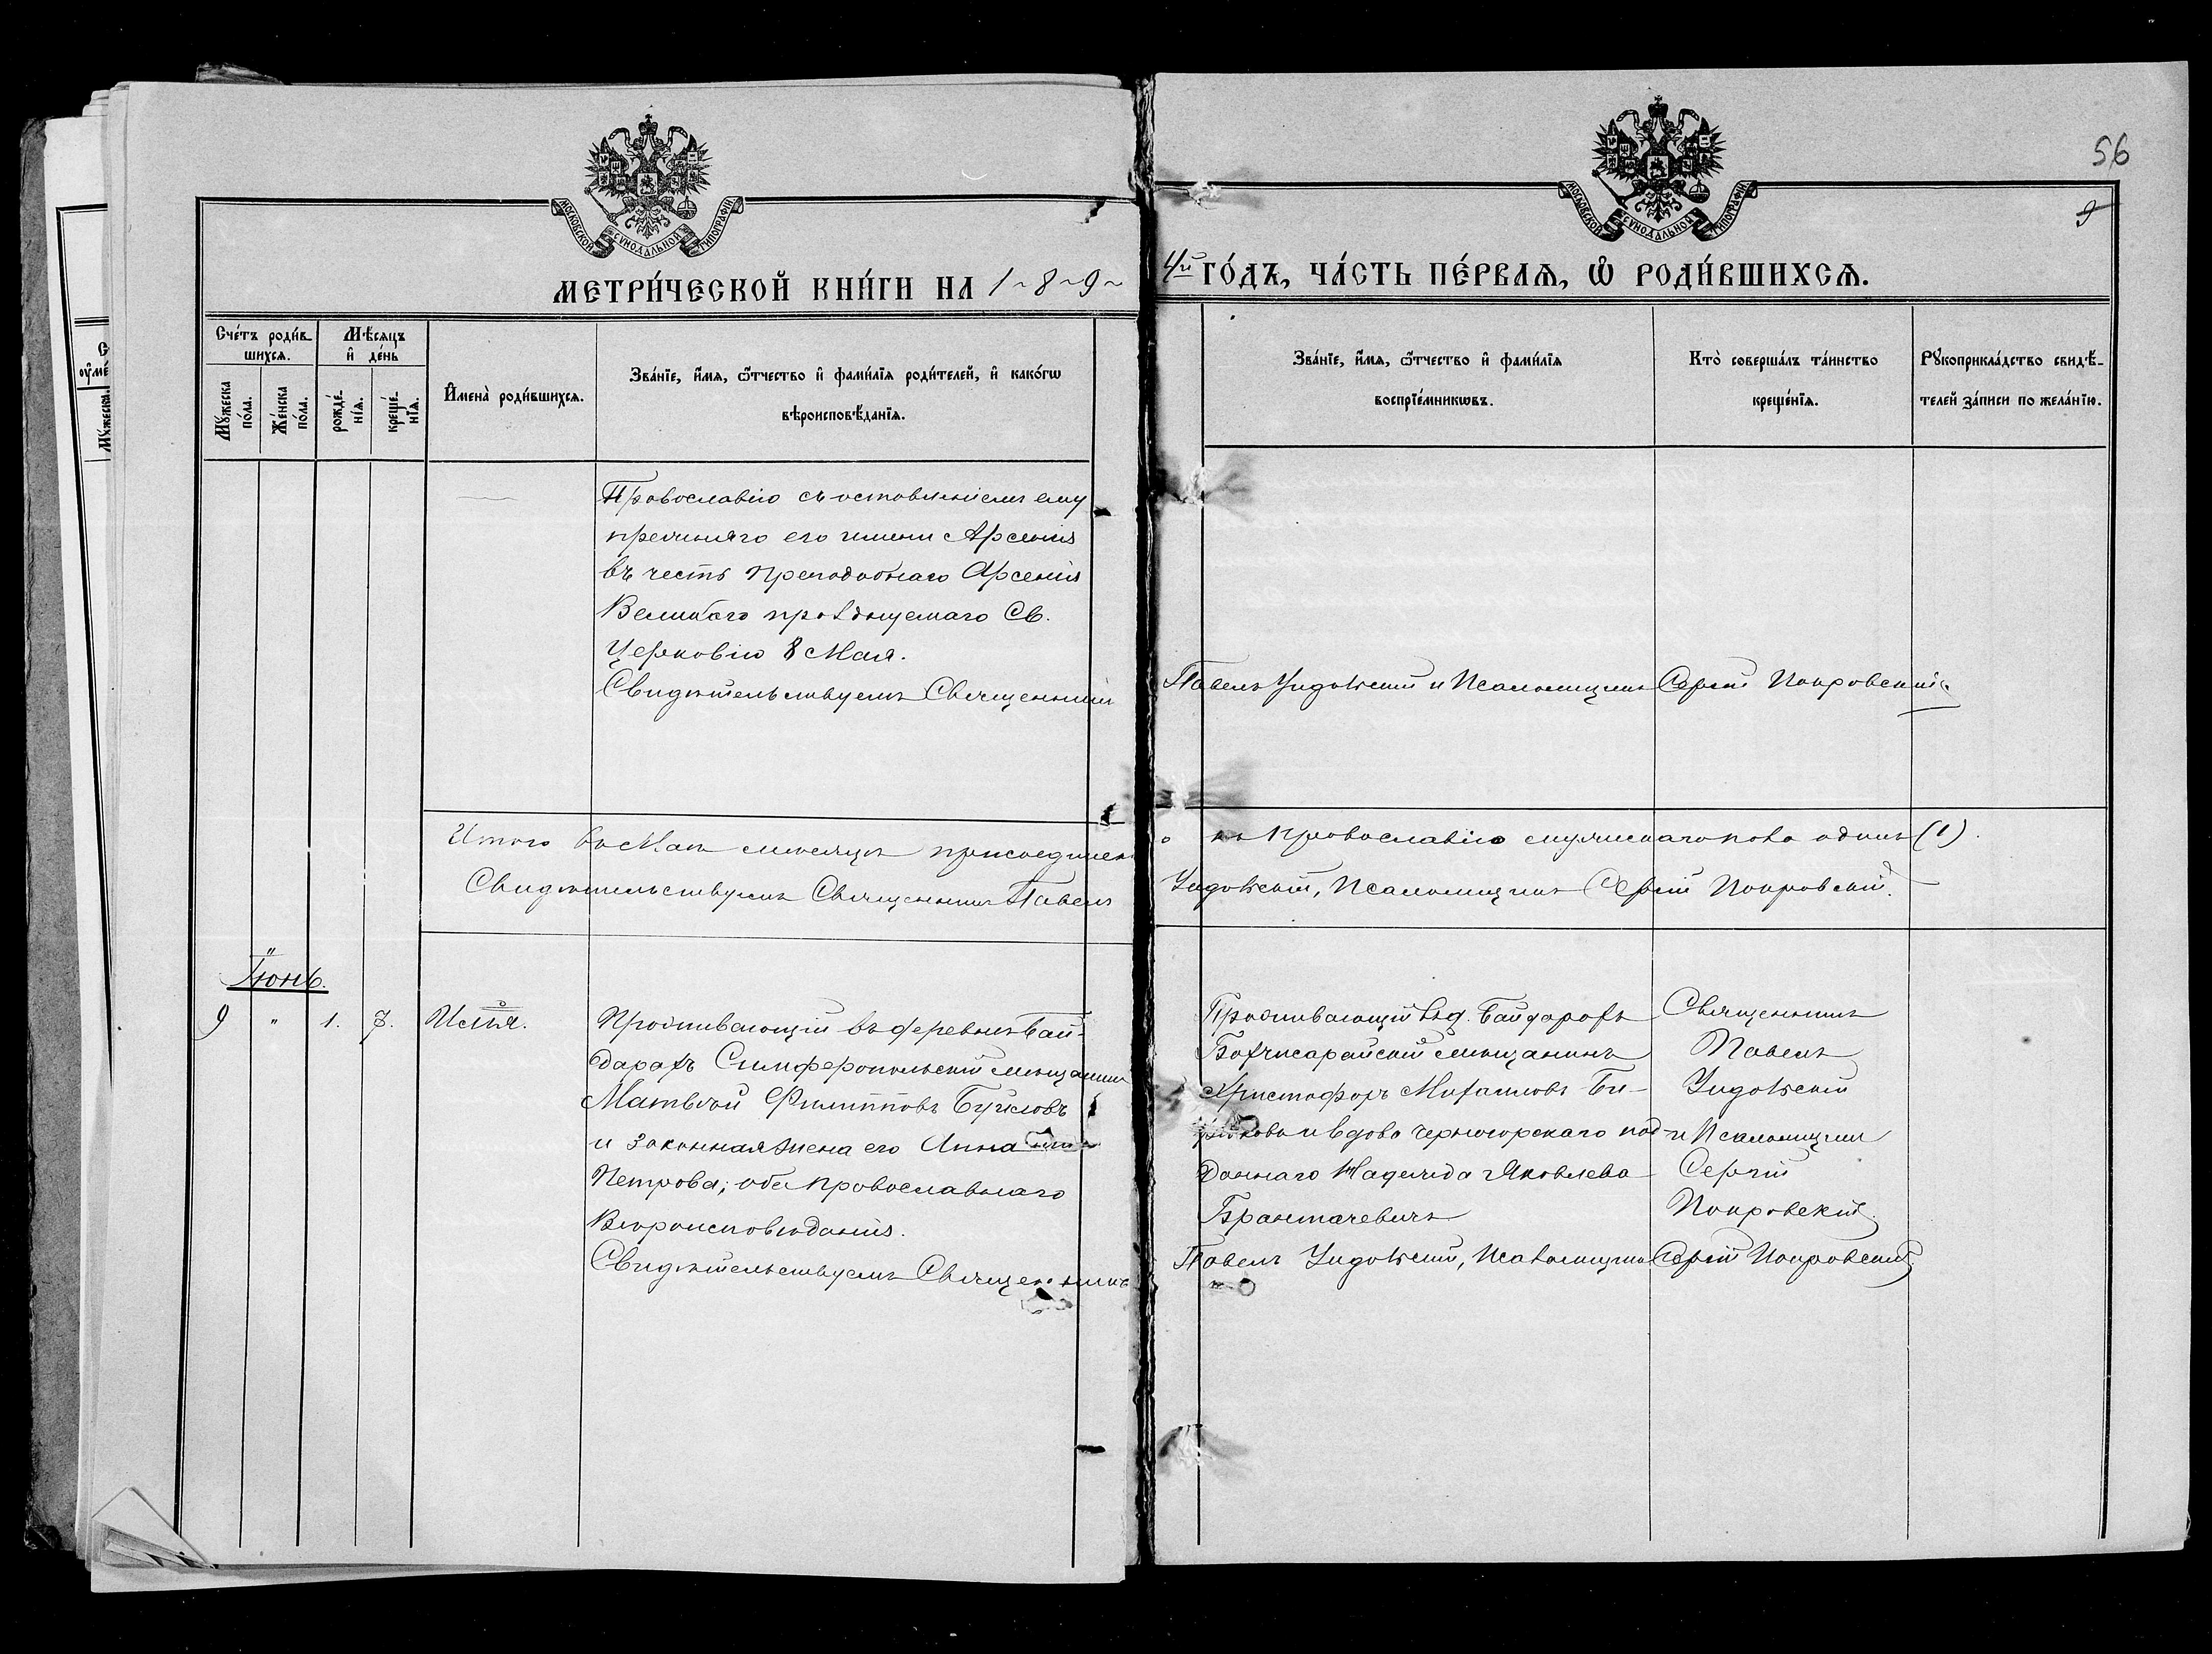 МОСКОВСКОЙ СѴНОДАЛЬНОЙ ТИПОГРАФІИ
МОСКОВСКОЙ СѴНОДАЛЬНОЙ ТИПОГРАФІИ
56
9
МЕТРИ́ЧЕСКОЙ КНИ́ГИ НА 1~8~9~ 4й ГО́ДЪ, ЧА́СТЬ ПЕ́РВАѦ, Ѡ҆ РОДИ́ВШИХСѦ.
Сче́тъ роди́в-
шихсѧ.
Мѣ́сѧцъ
и҆ де́нь
Мꙋ́жеска
по́ла.
Же́нска
по́ла.
рожде́-
нїѧ.
креще́-
нїѧ.
И҆мена̀ роди́вшихсѧ.
Зва́нїе, и҆́мѧ, ѻ҆́тчество и҆ фами́лїѧ роди́телей, и҆ како́гѡ
вѣроисповѣ́данїѧ.
Зва́нїе, и҆́мѧ, ѻ҆́тчество и҆ фами́лїѧ
воспрїе́мникѡвъ.
Кто̀ соверша́лъ та́инство
креще́нїѧ.
Рꙋкоприкла́дство свидѣ́-
телей за́писи по жела́нїю.
Православію съ оставленіемъ ему
прежняго его имени Арсенія
въ честь Преподобнаго Арсенія
Великаго празднуемаго Св.
Церковію 8 Мая.
Свидѣтельствуемъ Священникъ Павелъ Уидовскій и Псаломщикъ Сергій Покровскій.
Итого въ Маѣ мѣсяцѣ присоединено къ Православію мужескаго пола одинъ (1).
Свидѣтельствуемъ Священникъ Павелъ Уидовскій, Псаломщикъ Сергій Покровскій.
Іюнь.
9 " 1. 7. Илья.
Проживающій въ деревнѣ Бай-
дарахъ Симферопольскій мѣщанинъ
Матвѣй Филипповъ Буйловъ
и законная жена его Анна
Петрова; оба православнаго
Вѣроисповѣданія.
Свидѣтельствуемъ Священникъ
Проживающій въ д. Байдарахъ
Бахчисарайскій мѣщанинъ
Христофоръ Михаиловъ Би-
и вдова Черногорскаго под-
даннаго Надежда Яковлева
Брантачевичъ
Павелъ Уидовскій, Псаломщикъ Сергій Покровскій.
Священникъ
Павелъ
Уидовскій
и Псаломщикъ
Сергій
Покровскій.